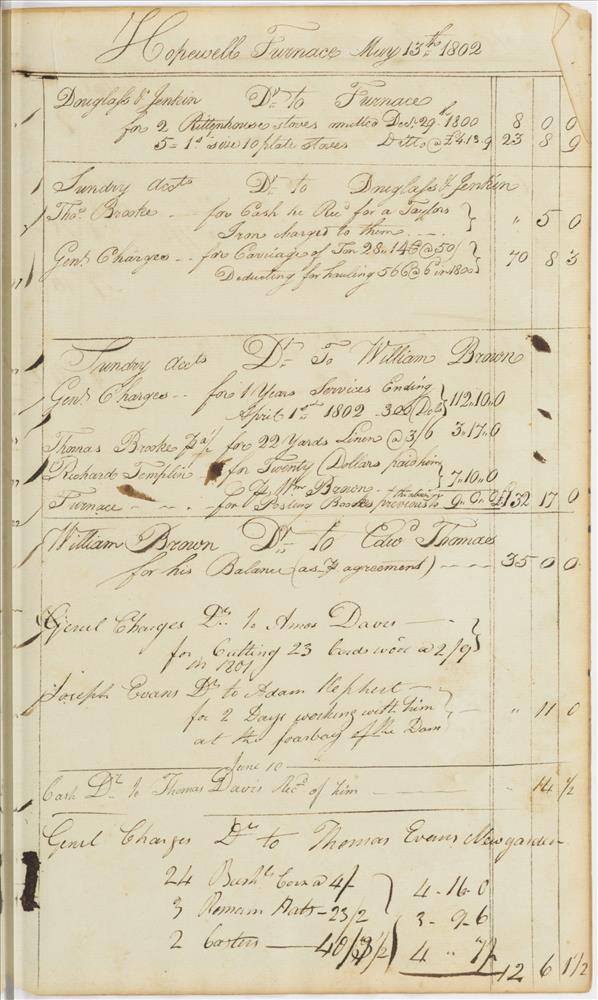 Hopewell Furnace May 13th 1802
Douglass & Jenkin Dr to Furnace
for 2 Rittenhouse stoves omitted Decr 29th 1800 8 0 0
5 = 1st size 10 plate stoves Ditto @ £4.13.9 23 8 9
Sundry accts Dr to Douglass & Jenkin
Thos Brooke - for Cash he Recd for a Taylors
Iron charged to them " 5 0
Genl Charges - for Carriage of Ton 28 " 14 C @ 50/
Deducting for hauling 56 C @ 6 in 1800 70 8 3
Sundry accts Dr To William Brown
Genl Charges - for 1 Years Services Ending
April 1st 1802 - 300 Dols 112 " 10 " 0
Thomas Brooke for 22 Yards Linen @ 3/6 3 " 17 " 0
Richard Templin for Twenty Dollars paid him
Wm Brown 7 " 10 " 0
Furnace - for Posting Books previous to 9 " 0 " 0 132 17 0
William Brown Dr to Edwd Thomas
for his Balance (as agreement) 35 0 0
Genrl Charges Dr to Amos Davis
for Cutting 23 Cords wood @ 2/9
in 1801
Joseph Evans Dr to Adam Hephert
for 2 Days working with him
at the foarbay of the Dam " 11 0
June 10
Cash Dr to Thomas Davis Recd of him 14 1/2
Genrl Charges Dr to Thomas Evans Newgarden
24 Bushls Corn @ 4/- 4 - 16 - 0
3 Romam Hats - 23/2 3 - 9 - 6
2 Casters 4 " 7/
12 6 1 1/2